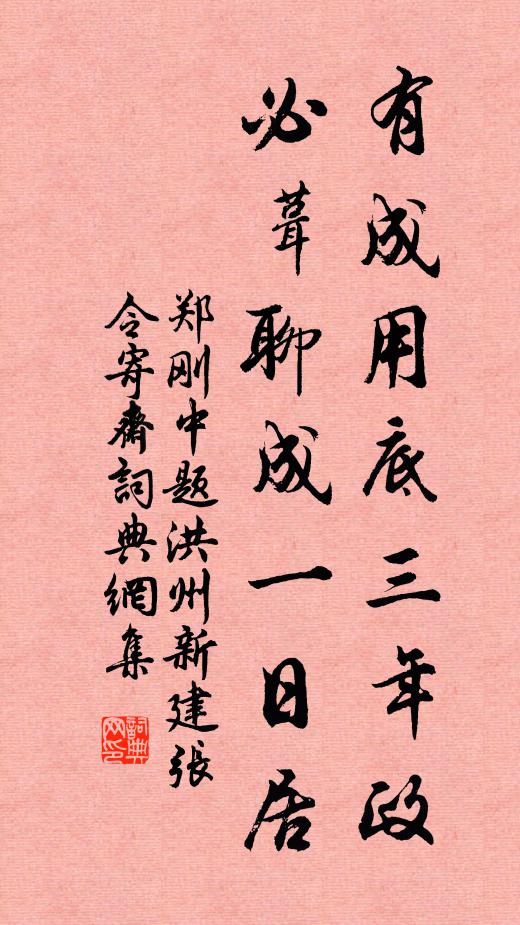 有成用底三年政
必葺聊成一日居
郑刚中题洪州新建張
令寄齋詞典網集
詞典
网印